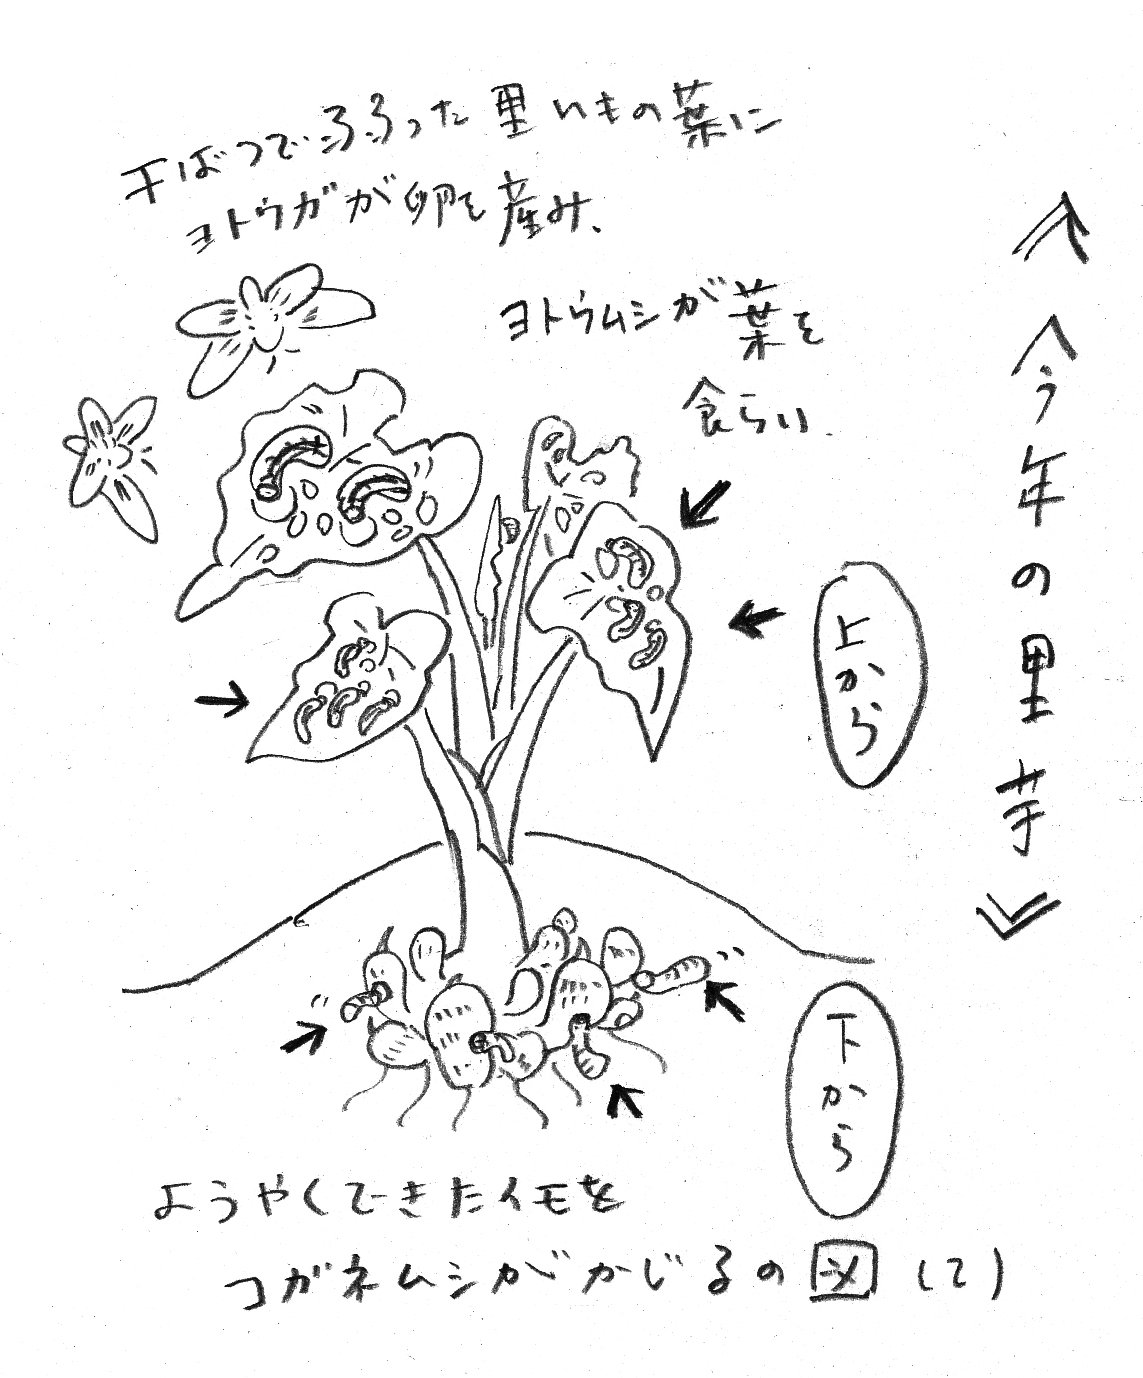 《今年の里芋》
干ばつで弱った里いもの葉に
ヨトウガが卵を産み、
ヨトウムシが葉を
食らい、
上から
下から
ようやくできたイモを
コガネムシがかじるの図